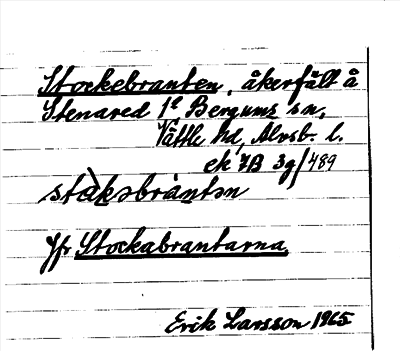 Stockebranten, åkerfält å
Stenared 1² Bergums sn,
Vättle hd, Älvsb. l.
ek 7B 3g/489
stàkəbràntən
Jfr Stockabrantarna
Erik Larsson 1965